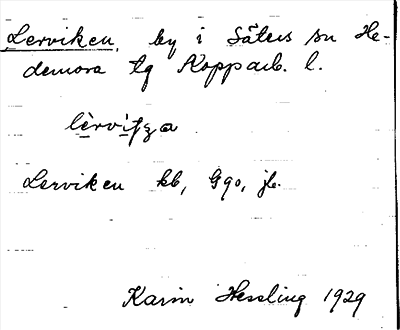 Lerviken, by i Säters sn He-
demora tg Kopparb. l.
Lerviken kb, G90, jb.
Karin Hessling 1929